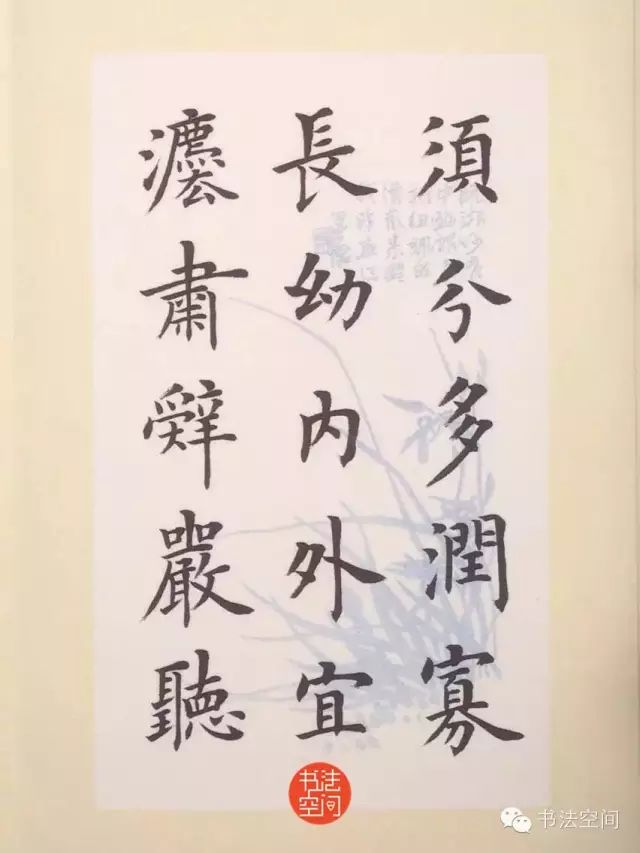 須分多潤寡
長幼内外宜
灋肅辤嚴聽
书法
空间
书法空间